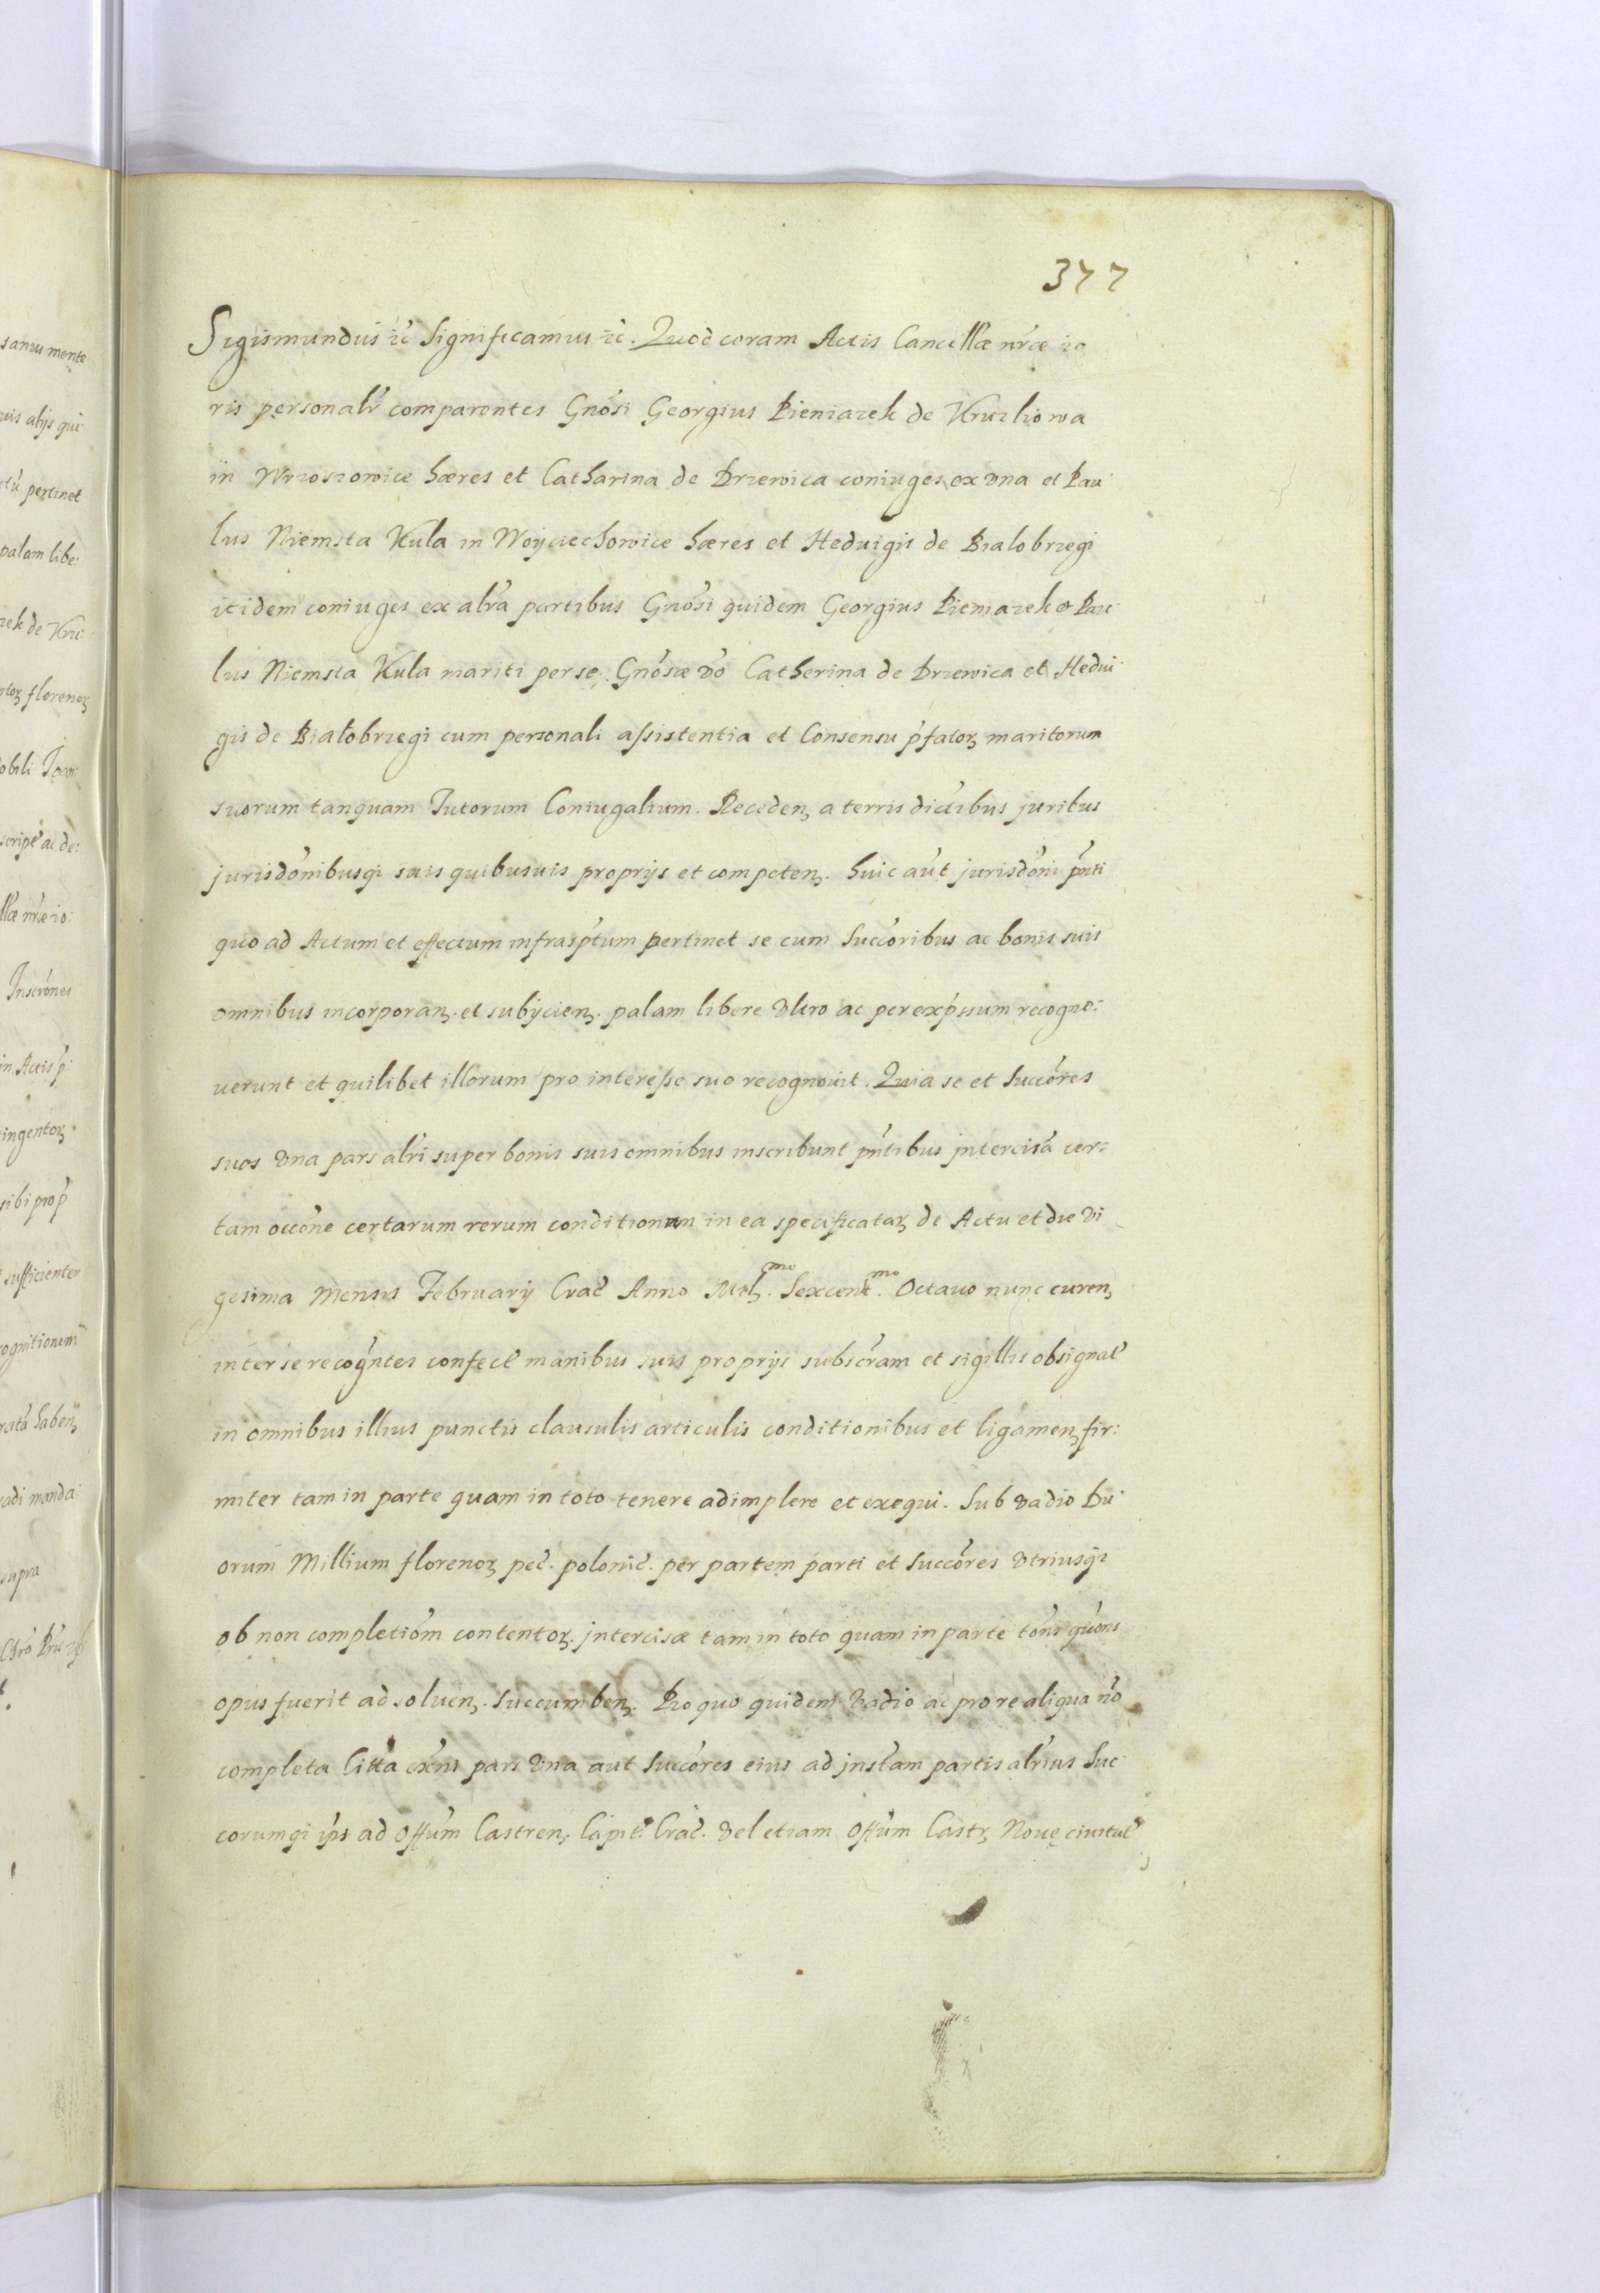 377
Sigismundus etc Significamus etc. Quod coram Actis Cancellae nrae io
ris personalr comparentes Gnosi Georgius Pieniazek de Kruzliowa
in Wrzoszowice haeres et Catharina de Drzewica coniuges ex vna et Pau
lus Niemsta Kula in Woyciechowice haeres et Heduigis de Bialobrzegi
itidem coniuges ex altra partibus Gnosi quidem Georgius Pieniazek et Pau
lus Niemsta Kula mariti per se. Gnosae vo Catherina de Drzewica et Hedui
gis de Białobrzegi cum personali assistentia et Consensu pfatorꝝ maritorum
suorum tanquam Tutorum Coniugalium. Receden a terris dictibus juribus
jurisdonibusqꝫ suis quibusuis proprijs et competen. huic aut jurisdoni pnti
quo ad Actum et effectum infrasptum pertinet se cum Succoribus ac bonis suis
omnibus incorporan. et subijcien. palam libere vltro ac per expssum recogno:
uerunt et quilibet illorum pro interesse suo recognouit. Quia se et Succores
suos vna pars altri super bonis suis omnibus inscribunt pntibus intercisa cer:
tam occone certarum rerum conditionum in ea specificatarꝝ de Actu et die Vi
gesima Mensis February Crac Anno Mill.mo Sexcent.mo Octauo nunc curen
inter se recogntes confect manibus suis proprijs subscram et sigillis obsignat
in omnibus illius punctis clausulis articulis conditionibus et ligamen fir:
miter tam in parte quam in toto tenere adimplere et exequi. Sub vadio Du
orum Millium florenorꝝ pec. polonic. per partem parti et Succores vtriusqꝫ
ob non completiom contentorꝝ jntercisae tam in toto quam in parte tons quons
opus fuerit ad soluen. Succumben. Pro quo quidem vadio ac pro re aliqua no
completa citta exns pars vna aut Succores eius ad jnstam partis altrius Suc
corumqꝫ ips ad Offum Castren. Capit. Crac. vel etiam Offum Castr Noue ciuitat